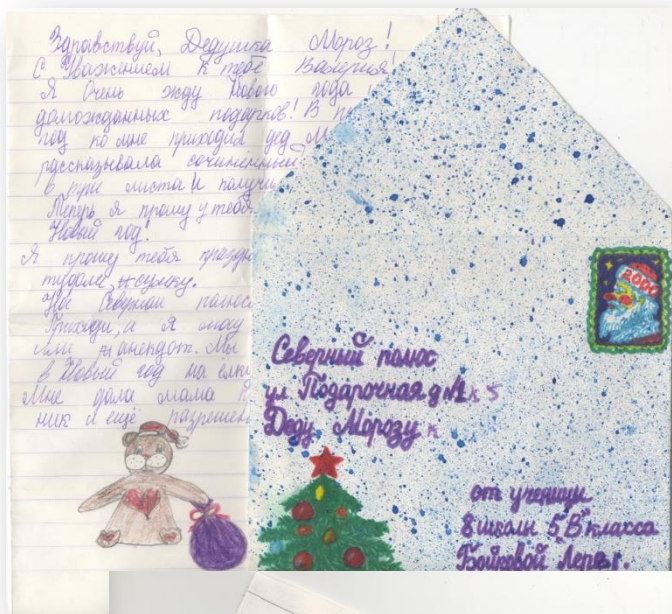 Здравствуй, Дедушка Мороз!
С Уважением к тебе Валерия!
Я очень жду Нового года
долгожданных подарков! В п
год ко мне приходил дед М
рассказывала сочинённый
в три листа и получи
Теперь я прошу у тебя
Новый год!
Я прошу тебя праздн
сумку.
На Северном полюсе
Приходи, и я могу
или анекдот. Мы
в Новый год на елк
Мне дала мама
ник и ещё разрешен
2000
Северный полюс
ул Подарочная д №1 к 5
Деду Морозу
от ученицы
8 школы 5 "В" класса
Бойковой Леры